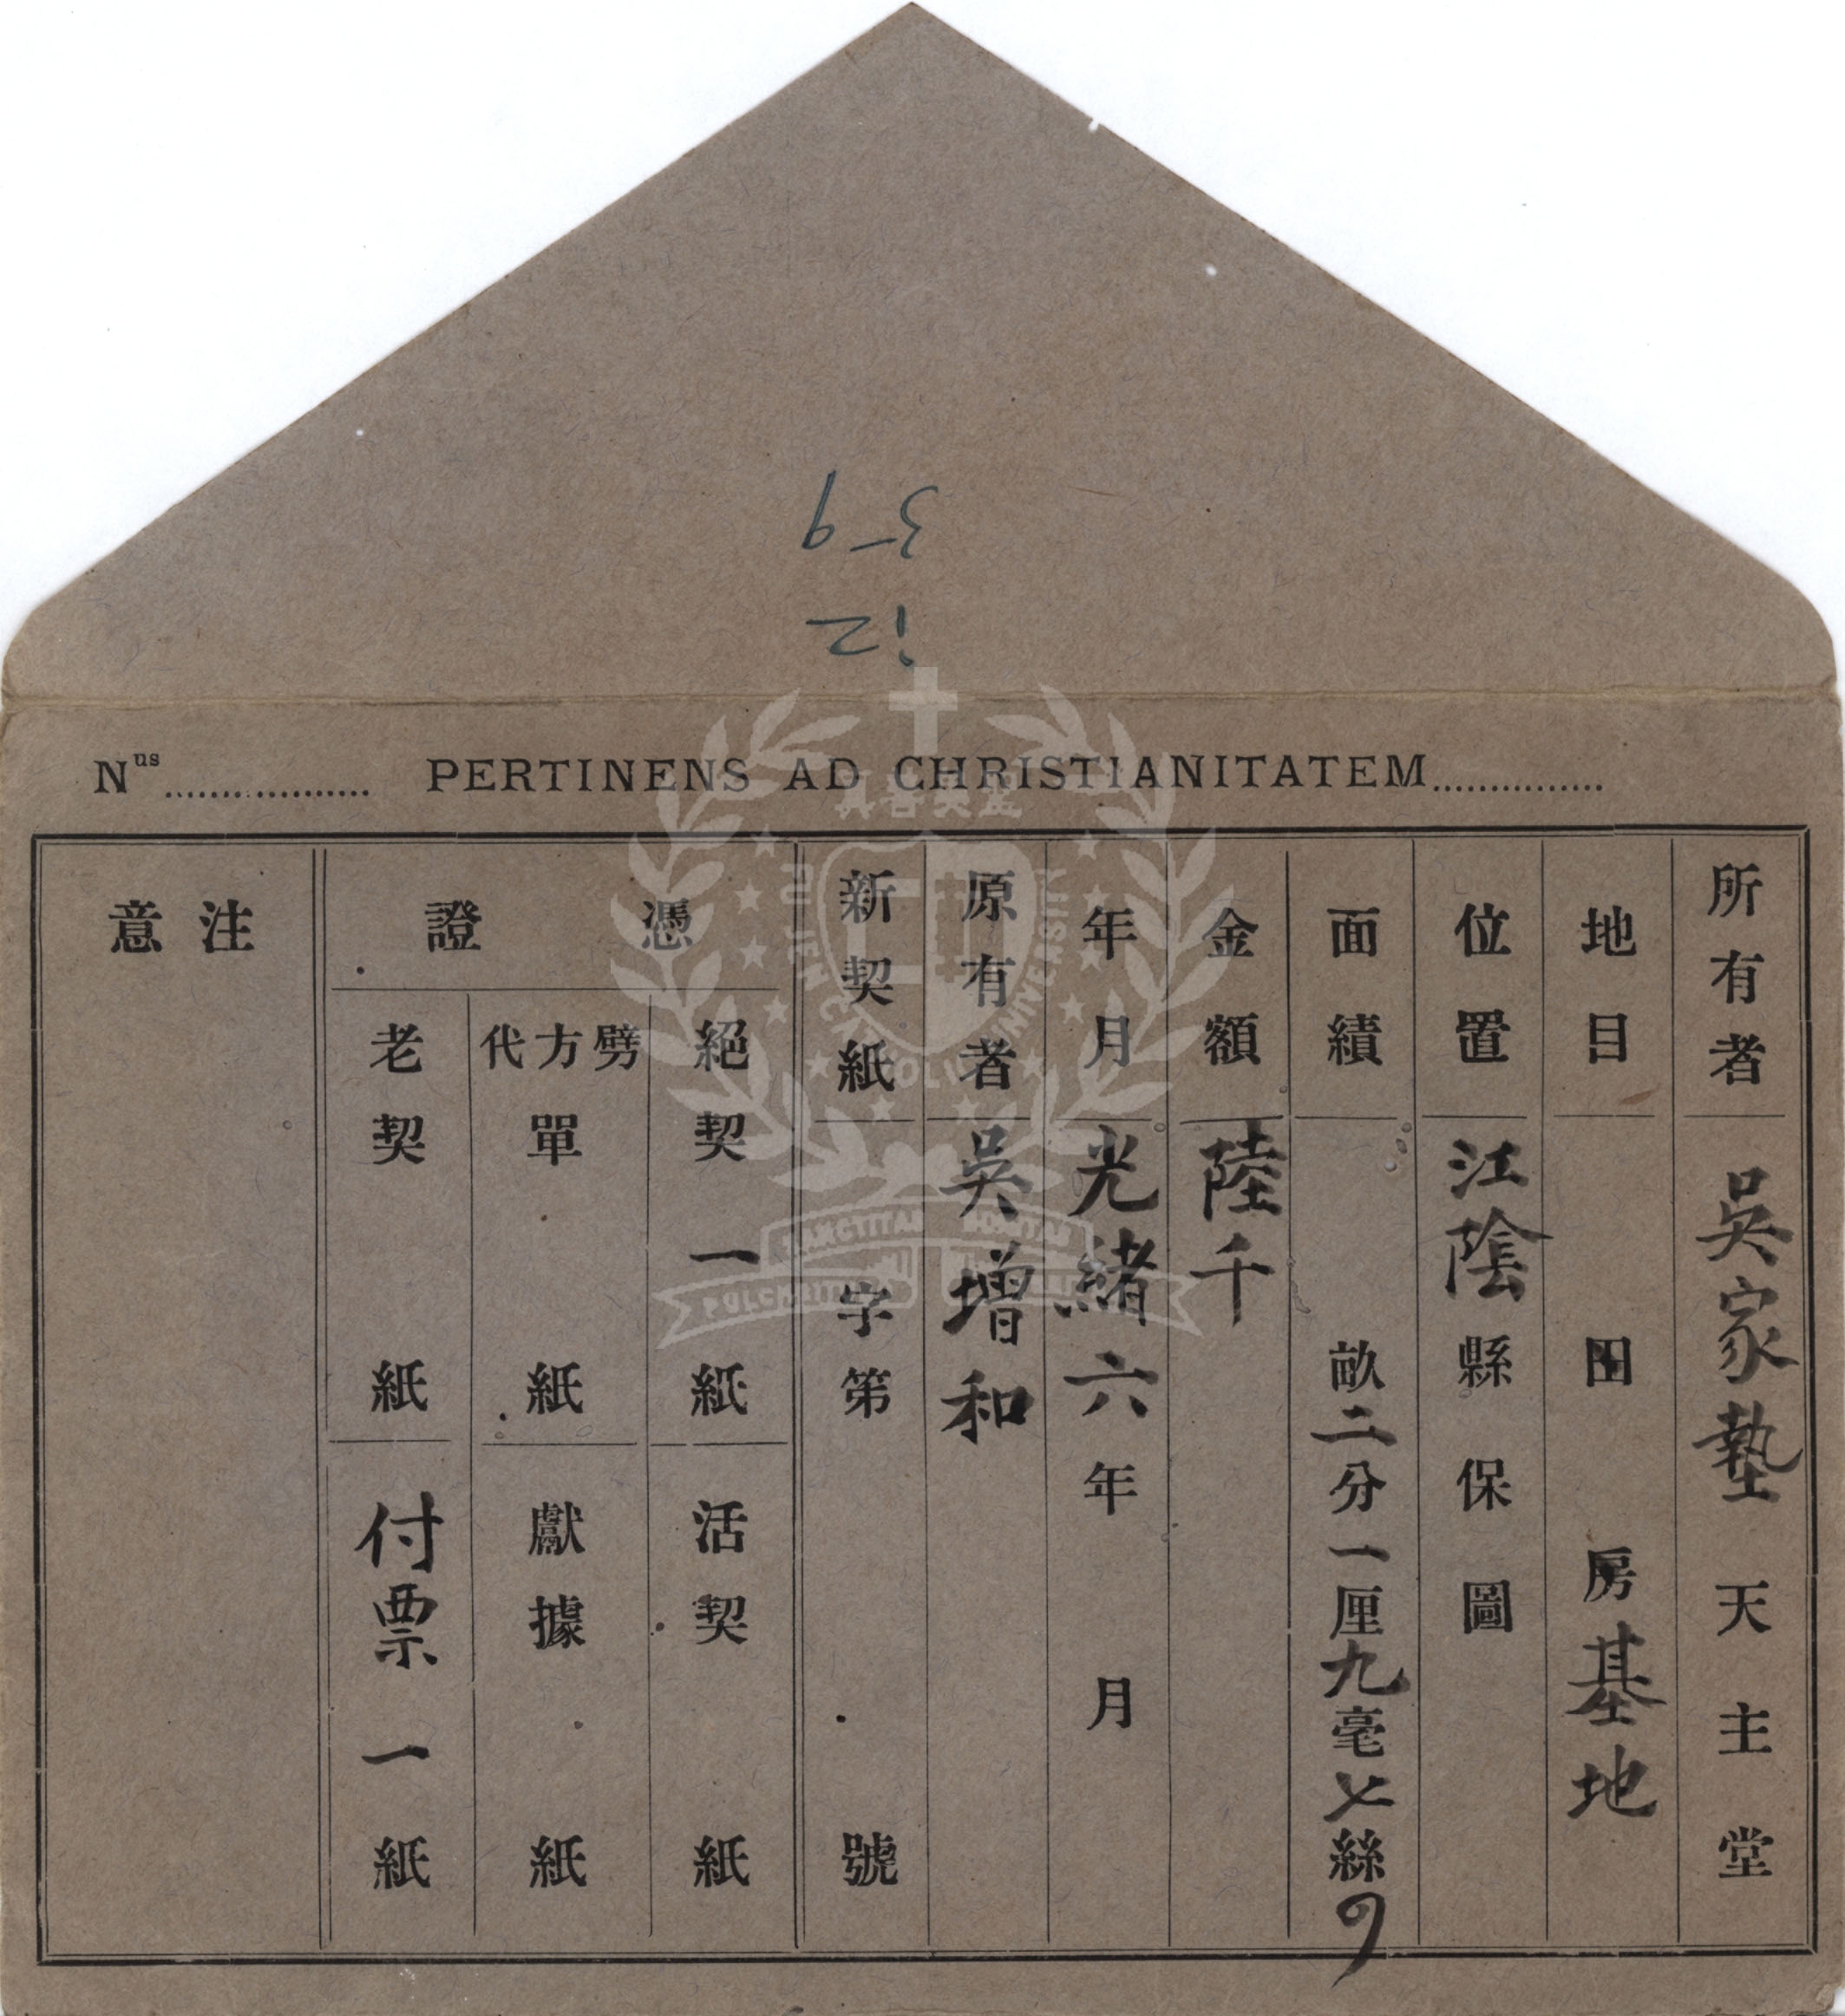 12
3-9
Nus PERTINENS AD CHRISTIANITATEM
所有者 吳家墊天主堂
地目 田 房基地
位置 江陰縣保圖
面績 畝二分一厘九毫七絲
金額 陸千
年月 光緒六年 月
原有者 吳增和
新契紙 字第 號
憑證
絕契 一紙
活契 紙
劈方代單 紙
獻據 紙
老契 紙
付票 一紙
注意
FU JEN CATHOLIC UNIVERSITY